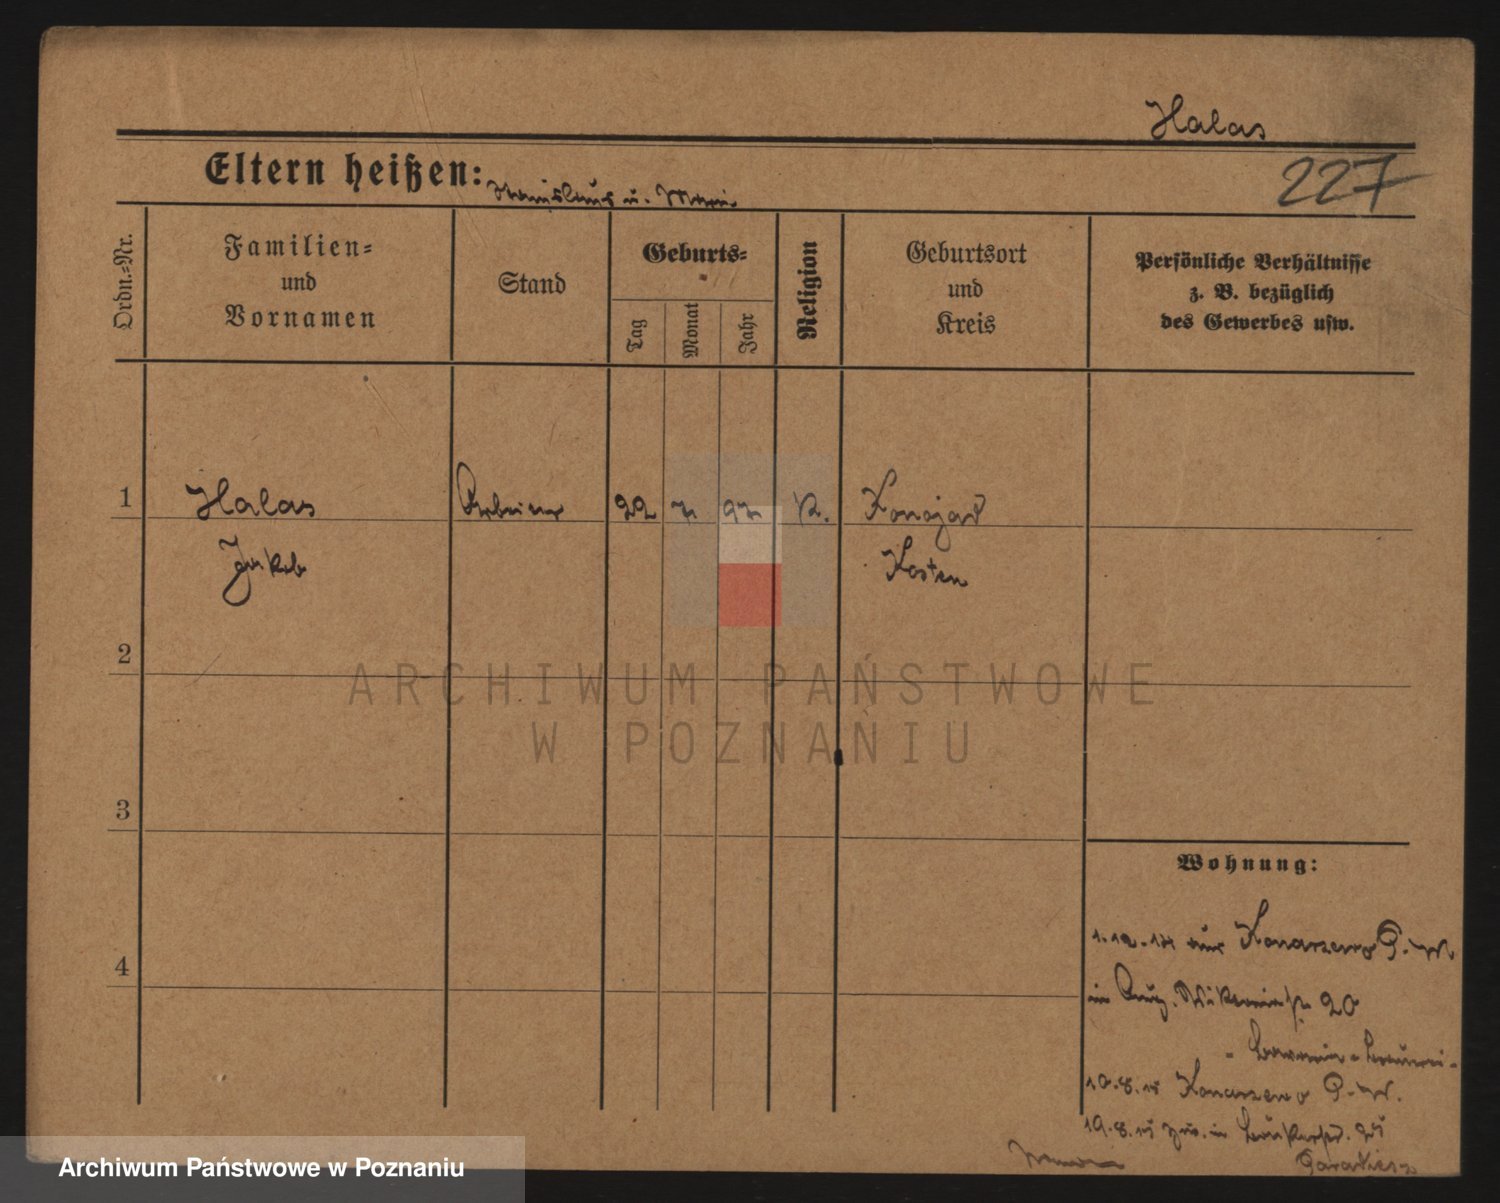 Halas
227
Eltern heißen: Stanislaus u. Marie
Ordn.=Nr.
Familien=
und
Vornamen
Stand
Geburts=
Tag
Monat
Jahr
Religion
Geburtsort
und
Kreis
Persönliche Verhältnisse
z. B. bezüglich
des Gewerbes usw.
1 Halas Arbeiter 22 7. 97 K. Konojad
Jakob Kosten
2
ARCHIWUM PAŃSTWOWE
W POZNANIU
3
Wohnung:
Konarzewo P.-W.
4
in 20
10.8.15 Konarzewo P.-W.
19.8.15 in
Archiwum Państwowe w Poznaniu